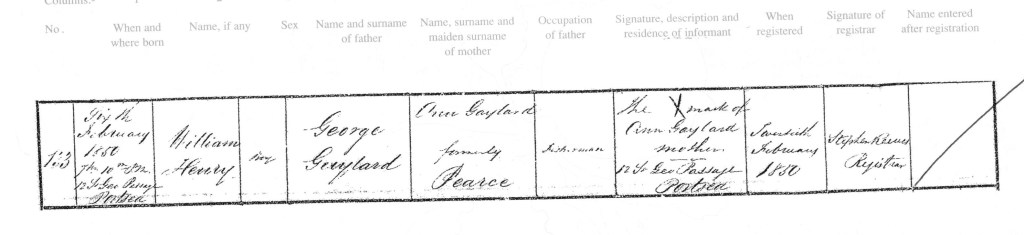 Columns:-
No. When and where born Name, if any Sex Name and surname of father Name, surname and maiden surname of mother Occupation of father Signature, description and residence of informant When registered Signature of registrar Name entered after registration
Sixth
February
1850
7h 10m
12 St Geo Passage
Portsea
William
Henry
Boy
George
Gaylard
Ann Gaylard
formerly
Pearce
Fisherman
The X mark of
Ann Gaylard
mother.
12 St Geo Passage
Portsea
Twentieth
February
1850
Stephen
Registrar